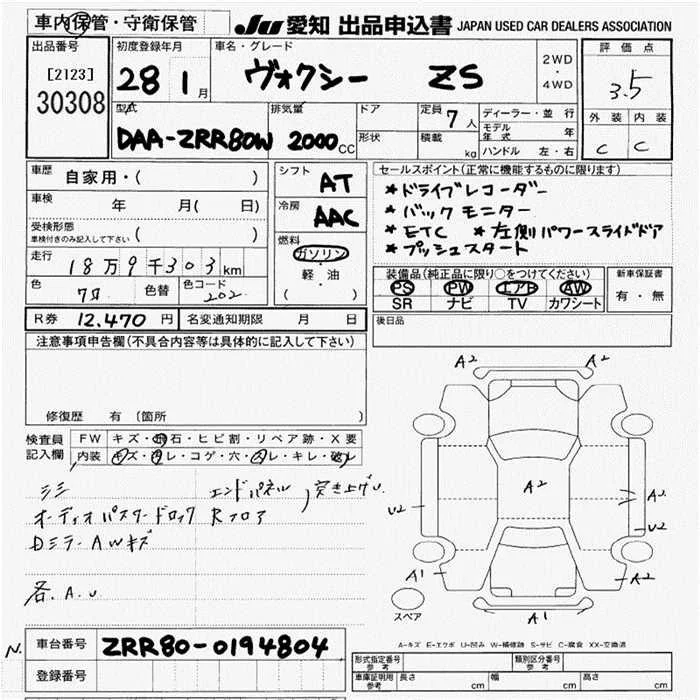 車内保管・守衛保管
JU 愛知 出品申込書 JAPAN USED CAR DEALERS ASSOCIATION
出品番号
[2123]
30308
初度登録年月
28 1月
車名・グレード
ヴォクシー ZS
2WD
・
4WD
評価点
3.5
外装 内装
C C
型式
DAA-ZRR80W
排気量
2000CC
ドア
形状
定員 7人
積載 kg
ディーラー・並行
モデル年式 年
ハンドル 左・右
車歴 自家用・( )
車検 年 月( 日)
受検形態
車検付きのみ記入して下さい ( )
走行 18万9千303km
色 色替
色コード 202
シフト
AT
冷房
AAC
燃料
ガソリン
軽・油
( )
セールスポイント(正常に機能するものに限ります)
*ドライブレコーダー
*バックモニター
*ETC *左側パワースライドドア
*プッシュスタート
装備品(純正品に限り○をつけてください)
PS PW エアB AW
SR ナビ TV カワシート
新車保証書
有・無
R券 12,470円
名変通知期限 月 日
後日品
注意事項申告欄(不具合内容等は具体的に記入して下さい)
修復歴 有 (箇所 )
検査員記入欄
FW キズ・飛石・ヒビ割・リペア跡・X要
内装 キズ・汚レ・コゲ・穴・スレ・キレ・破レ
エンドパネル
突き上げU
Rフロア
DミラーAWキズ
各A.U.
A2 A2
A2
U2
A2
U2
A1
A2
A1
スペア
A-キズ E-エクボ U-凹み W-補修跡 S-サビ C-腐食 XX-交換済
N.
車台番号 ZRR80-0194804
登録番号
形式指定番号
参考
類別区分番号
参考
車庫証明用
参考
長さ cm
幅 cm
高さ cm